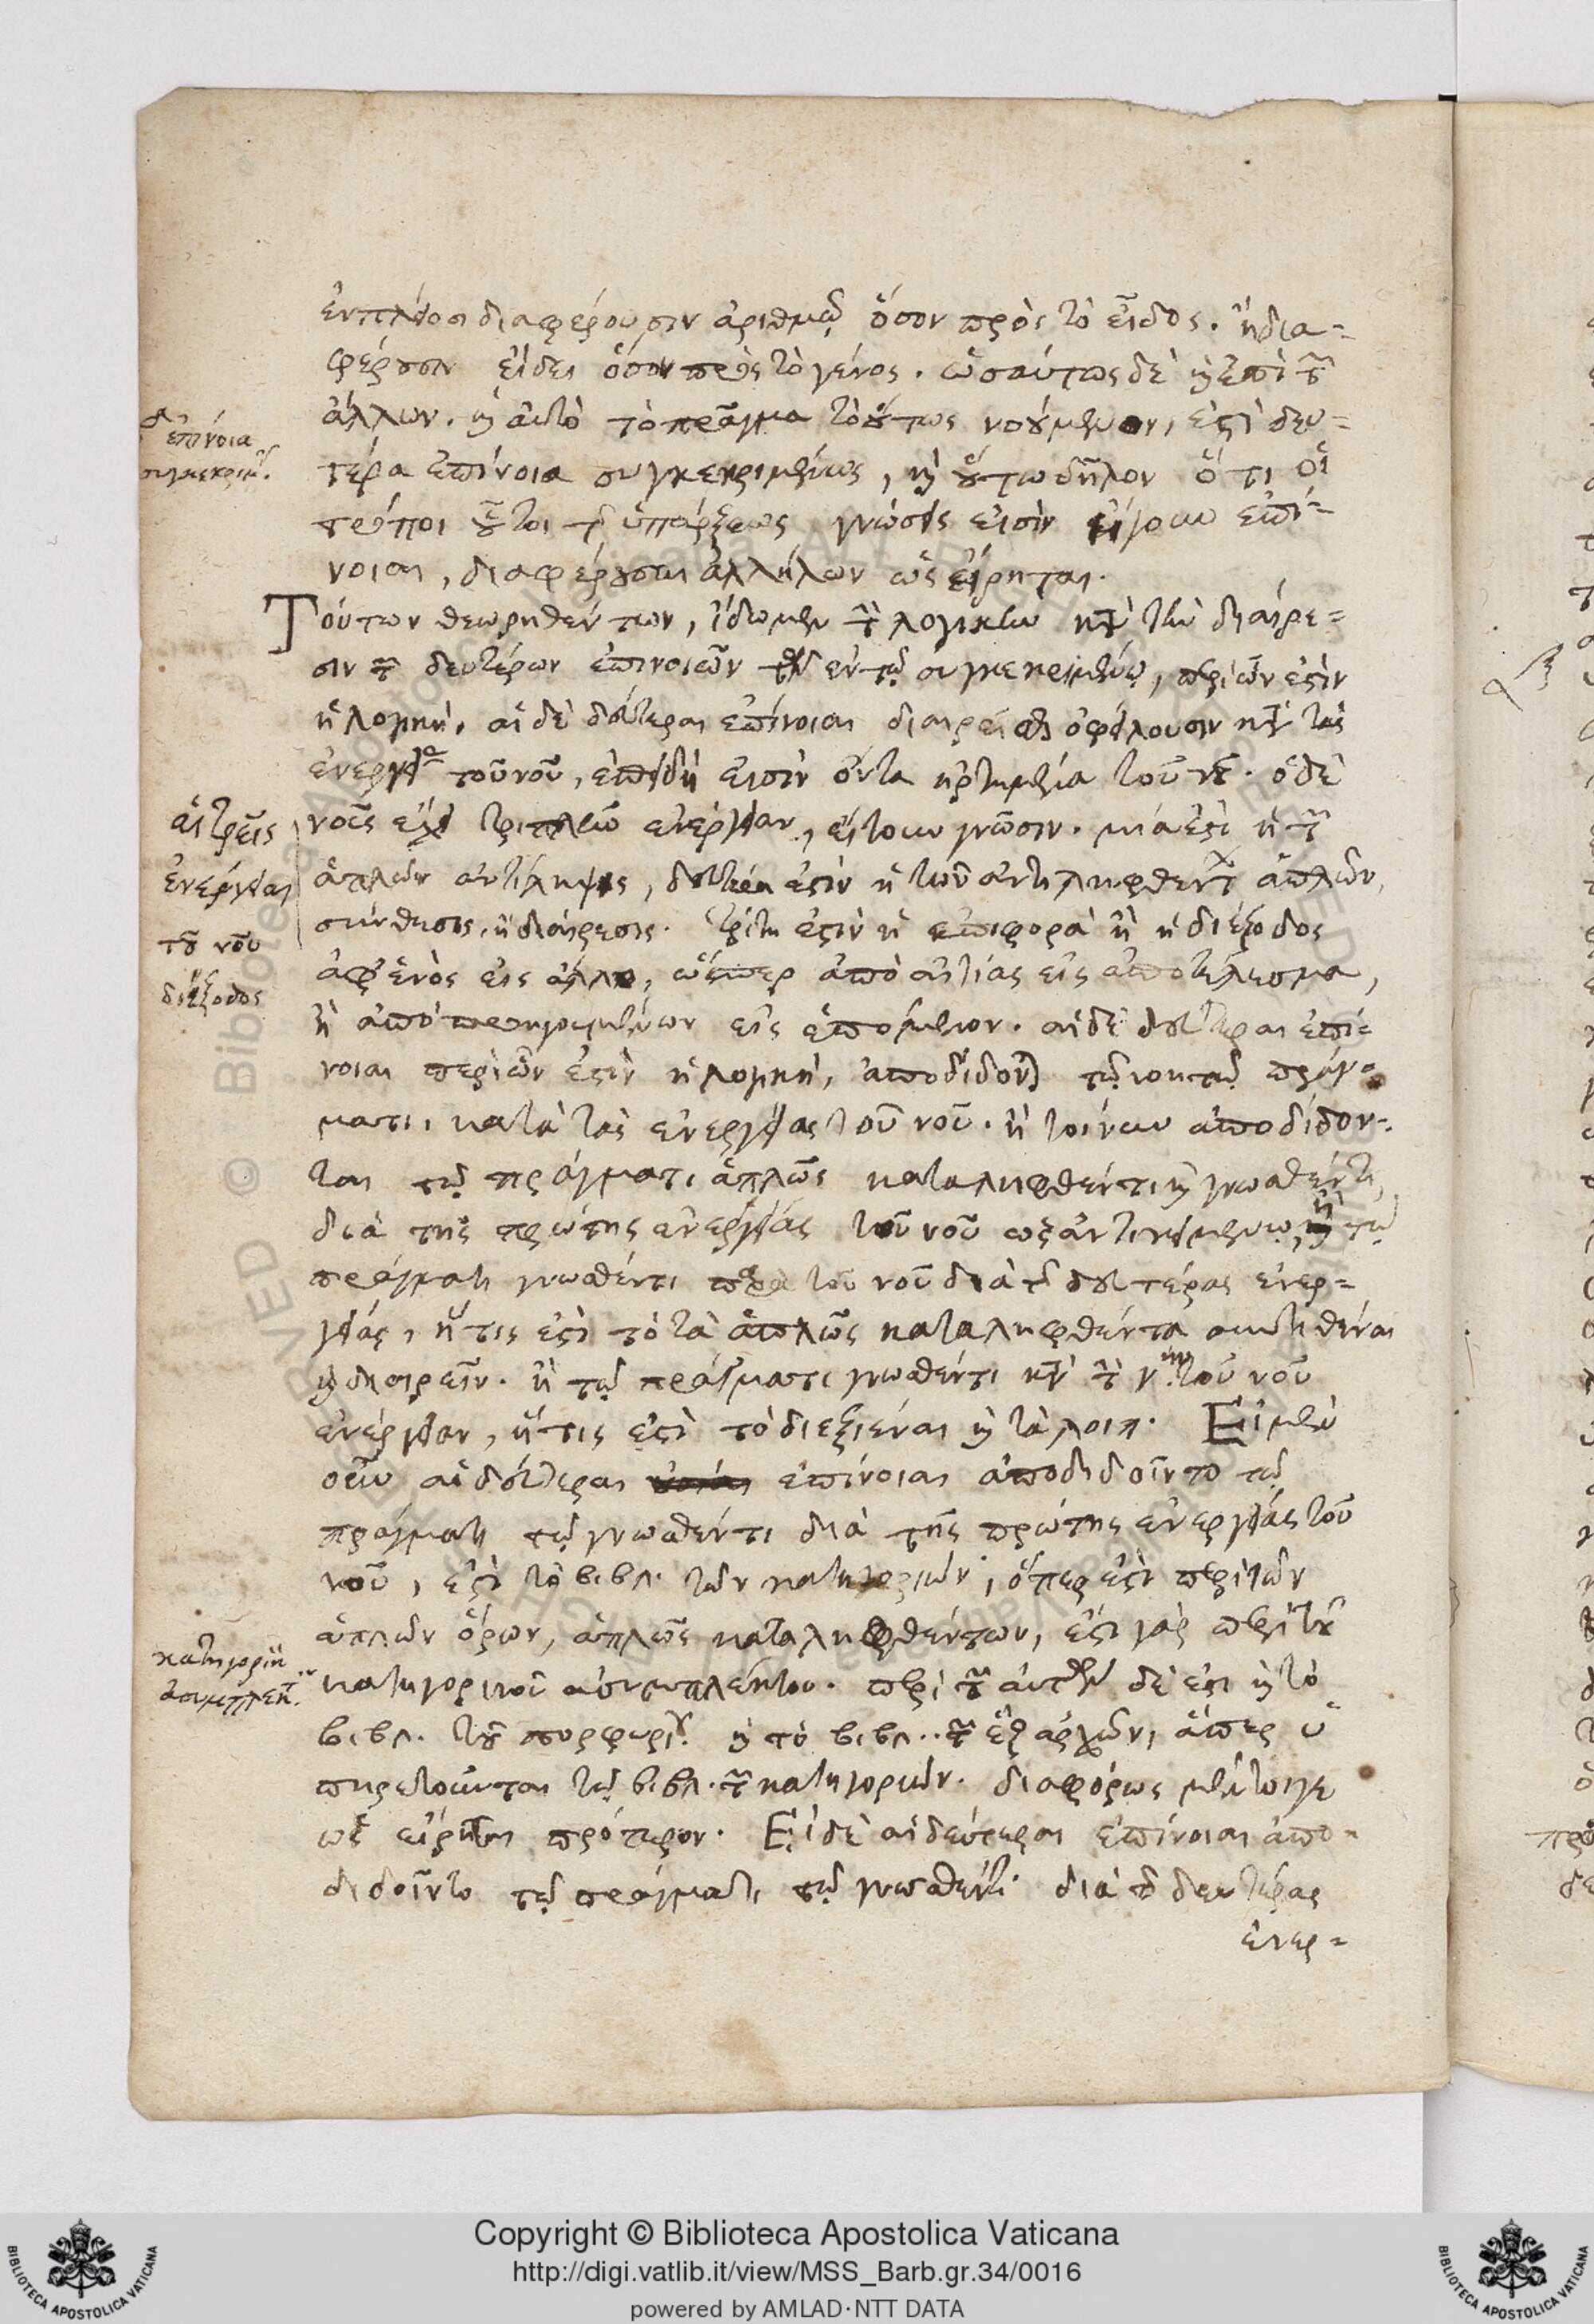 ἐν πλείοσι διαφέρουσιν ἀριθμῷ ὅσον πρὸς τὸ εἶδος. ἢ δια=
φέρουσιν εἴδει ὅσον πρὸς τὸ γένος. ὡσαύτως δὲ καὶ ἐπὶ τῶν
ἄλλων. καὶ αὐτὸ τὸ πρᾶγμα τὸ οὕτως νοούμενον, ἐστὶ δευ=
ἐπίνοια
συγκεκριμ.
τέρα ἐπίνοια συγκεκριμένως, καὶ οὕτω δῆλον ὅτι οἱ
τρόποι οὗτοι τῆς ὑπάρξεως γνώσεις εἰσὶν εἴγουν ἐπί=
νοιαι, διαφέρουσαι ἀλλήλων ὡς εἴρηται.
Τούτων θεωρηθέντων, ἴδωμεν τὴν λογικὴν κατὰ τὴν διαίρε=
σιν τῶν δευτέρων ἐπινοιῶν τῶν ἐν τῷ συγκεκριμένῳ, περὶ ὧν ἐστὶν
ἡ λογική. αἱ δὲ δεύτεραι ἐπίνοιαι διαιρεῖσθαι ὀφείλουσιν κατὰ τὰς
ἐνεργείας τοῦ νοῦ, ἐπειδή εἰσιν ὄντα ἠρτημένα τοῦ νοῦ. ὁ δὲ
αἱ τρεῖς
ἐνέργειαι
τοῦ νοῦ
διέξοδος
νοῦς ἔχει τριπλῆν ἐνέργειαν, εἴτουν γνῶσιν. μία ἐστὶ ἡ τῶν
ἁπλῶν ἀντίληψις, δευτέρα ἐστὶν ἡ τῶν ἀντιληφθέντων ἁπλῶν,
σύνθεσις, ἢ διαίρεσις. τρίτη ἐστὶν ἡ ἐπιφορὰ ἢ ἡ διέξοδος
ἀφ' ἑνὸς εἰς ἄλλο, ὥσπερ ἀπὸ αἰτίας εἰς ἀποτέλεσμα,
ἢ ἀπὸ προηγουμένων εἰς ἑπόμενον. αἱ δὲ δεύτεραι ἐπί=
νοιαι περὶ ὧν ἐστὶν ἡ λογική, ἀποδίδονται τῷ νοητῷ πράγ=
ματι, κατὰ τὰς ἐνεργείας τοῦ νοῦ. ἢ τοίνυν ἀποδίδον=
ται τῷ πράγματι ἁπλῶς καταληφθέντι καὶ γνωσθέντι,
διὰ τῆς πρώτης ἐνεργείας τοῦ νοῦ ὡς ἀντικειμένῳ, ἢ τῷ
πράγματι γνωσθέντι παρὰ τοῦ νοῦ διὰ τῆς δευτέρας ἐνερ=
γείας, ἥτις ἐστὶ τὸ τὰ ἁπλῶς καταληφθέντα συντιθέναι
καὶ διαιρεῖν. ἢ τῷ πράγματι γνωσθέντι κατὰ τὴν γ ην τοῦ νοῦ
ἐνέργειαν, ἥτις ἐστὶ τὸ διεξιέναι καὶ τὰ λοιπ. Εἰ μὲν
οὖν αἱ δεύτεραι ἐπίνοιαι ἀποδιδοῖντο τῷ
πράγματι τῷ γνωσθέντι διὰ τῆς πρώτης ἐνεργείας τοῦ
νοῦ, ἐστὶ τὸ βιβλ. τῶν κατηγοριῶν, ὅπερ ἐστὶ περὶ τῶν
ἁπλῶν ὅρων, ἁπλῶς καταληφθέντων, ἐστὶ γὰρ περὶ τοῦ
κατηγορικ
ἀσυμπλεκτ
κατηγορικοῦ ἀσυμπλέκτου. περὶ τῶν αὐτῶν δέ ἐστι καὶ τὸ
βιβλ. τοῦ πορφυρίου. καὶ τὸ βιβλ. τῶν ἓξ ἀρχῶν, ἅπερ ὑ
πηρετοῦνται τῷ βιβλ. τῶν κατηγοριῶν. διαφόρως μέντοιγε
ὡς εἴρηται πρότερον. Εἰ δὲ αἱ δεύτεραι ἐπίνοιαι ἀπο=
διδοῖντο τῷ πράγματι τῷ γνωσθέντι διὰ τῆς δευτέρας
ἐνερ=
Copyright © Biblioteca Apostolica Vaticana
http://digi.vatlib.it/view/MSS_Barb.gr.34/0016
powered by AMLAD·NTT DATA
BIBLIOTECA APOSTOLICA VATICANA
BIBLIOTECA APOSTOLICA VATICANA